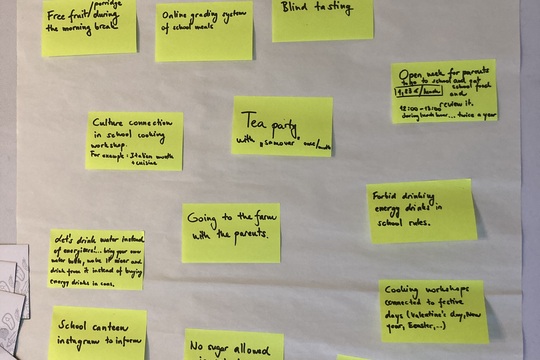 Free fruit/porridge during
the morning break
Online grading system
of school meals
Blind tasting
Open week for parents
to school and eat
school food
and
12:00-13:00 review it.
during lunch hour... twice a year
Culture connection
in school cooking
workshop.
For example: Italian month
+ cuisine
Tea party
with "samovar"
Forbid drinking
energy drinks in
school rules.
Going to the farm
with the parents.
Let's drink water instead
of energizers!... bring your own
water bottle, make it and
drink from it instead of buying
energy drinks in cans.
Cooking workshops
connected to festive
days (Valentine's day, New
year, Easter,..)
School canteen
instagram to inform
No sugar allowed